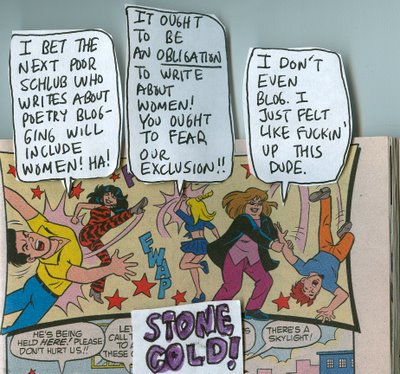 I BET THE
NEXT POOR
SCHLUB WHO
WRITES ABOUT
POETRY BLOG-
GING WILL
INCLUDE
WOMEN! HA!
IT OUGHT
TO BE
AN OBLIGATION
TO WRITE
ABOUT
WOMEN!
YOU OUGHT
TO FEAR
OUR
EXCLUSION!!
I DON'T
EVEN
BLOG. I
JUST FELT
LIKE FUCKIN'
UP THIS
DUDE.
FWAP
STONE
COLD!
HE'S BEING
HELD HERE! PLEASE
DON'T HURT US!!
CALL
TO
THESE
THERE'S A
SKYLIGHT!